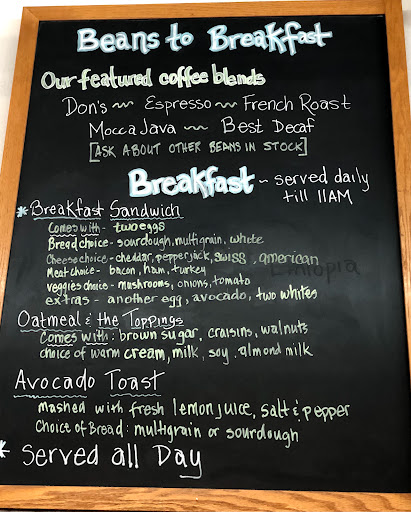 Beans to Breakfast
Our featured coffee blends
Don's ~ Espresso ~ French Roast
Mocca Java ~ Best Decaf
[ASK ABOUT OTHER BEANS IN STOCK]
Breakfast ~ served daily
till 11AM
* Breakfast Sandwich
Comes with - two eggs
Bread choice - sourdough, multigrain, white
Cheese choice - cheddar, pepperjack, swiss, american
Ethiopia
Meat choice - bacon, ham, turkey
veggies choice - mushrooms, onions, tomato
extras - another egg, avocado, two whites
Oatmeal & the Toppings
Comes with: brown sugar, craisins, walnuts
choice of warm cream, milk, soy, almond milk
Avocado Toast
mashed with fresh lemon juice, salt & pepper
Choice of Bread: multigrain or sourdough
* Served all Day